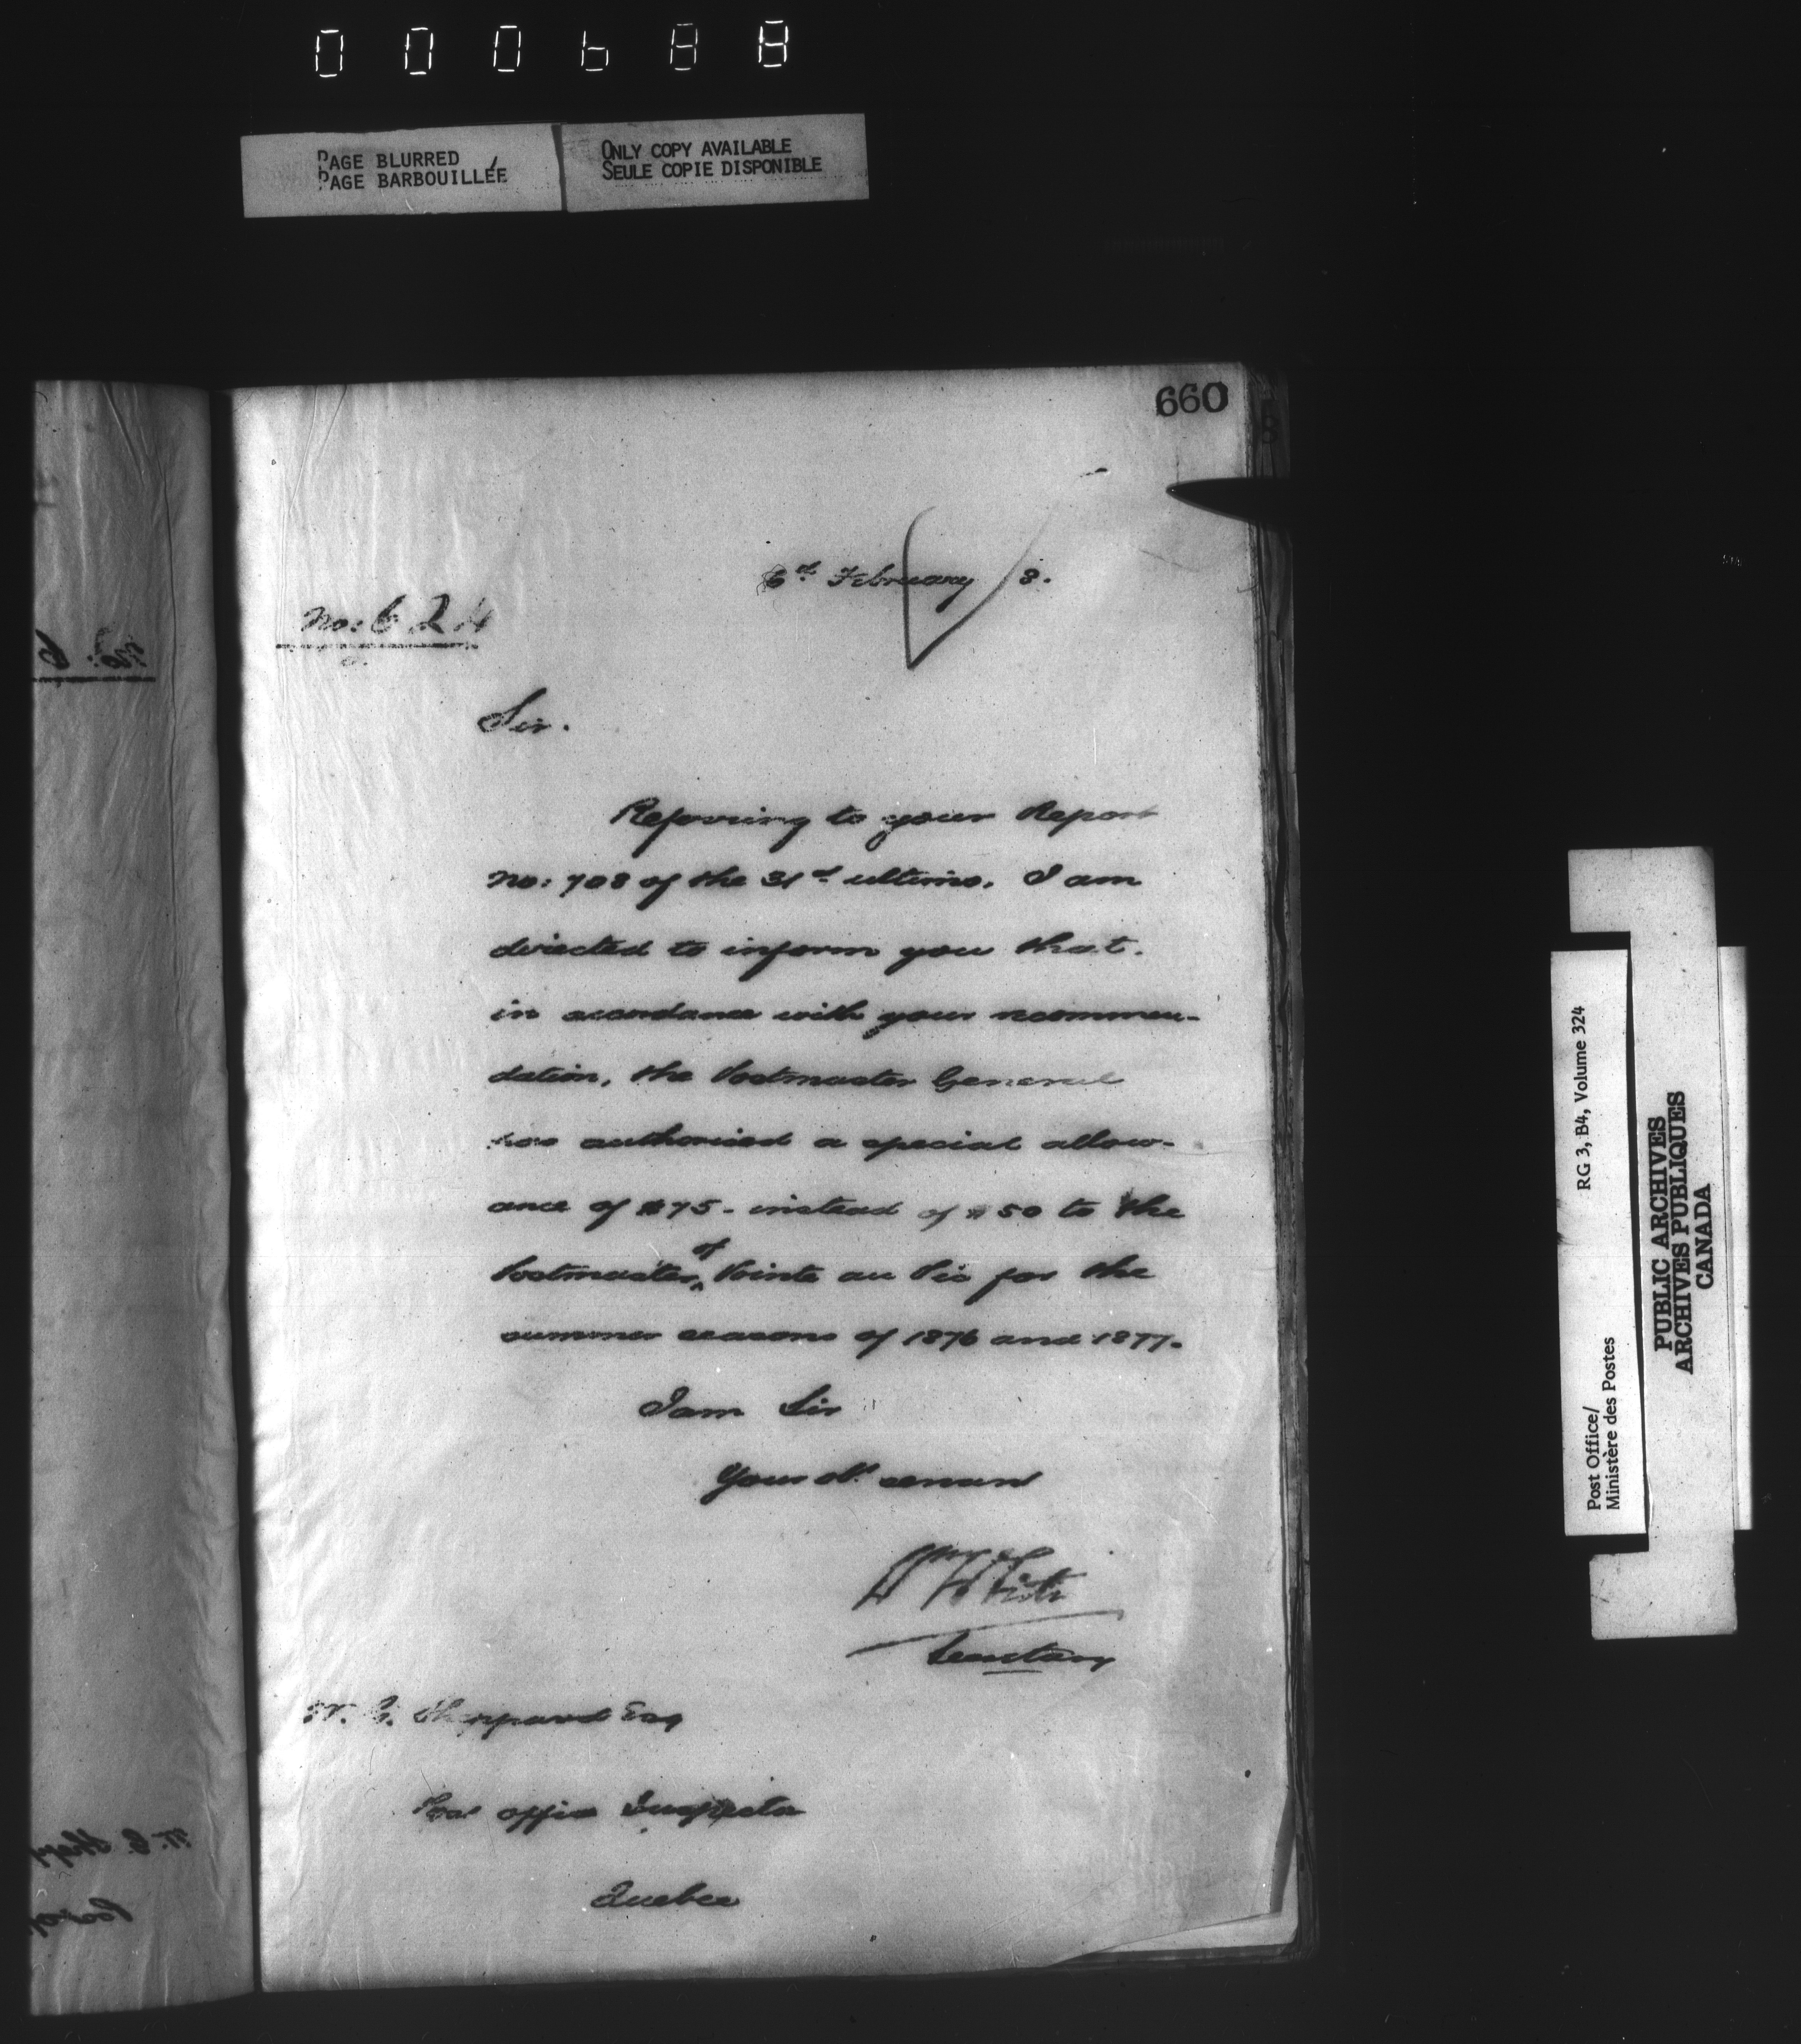 000688
PAGE BLURRED
PAGE BARBOUILLÉE
ONLY COPY AVAILABLE
SEULE COPIE DISPONIBLE
660
6th February 8.
No: 624
Sir.
Referring to your Report
No: 708 of the 31st ultimo. I am
directed to inform you that.
in accordance with your recommen-
dation, the Postmaster General
has authorised a special allow-
ance of $75- instead of $50 to the
Postmaster of Pointe au Pic for the
summer seasons of 1876 and 1877.
I am Sir
Your obt. servant
Wm White
Secretary
W. G. Sheppard Esq
Post office Inspector
Quebec
Post Office/
Ministère des Postes
RG 3, B4, Volume 324
PUBLIC ARCHIVES
ARCHIVES PUBLIQUES
CANADA